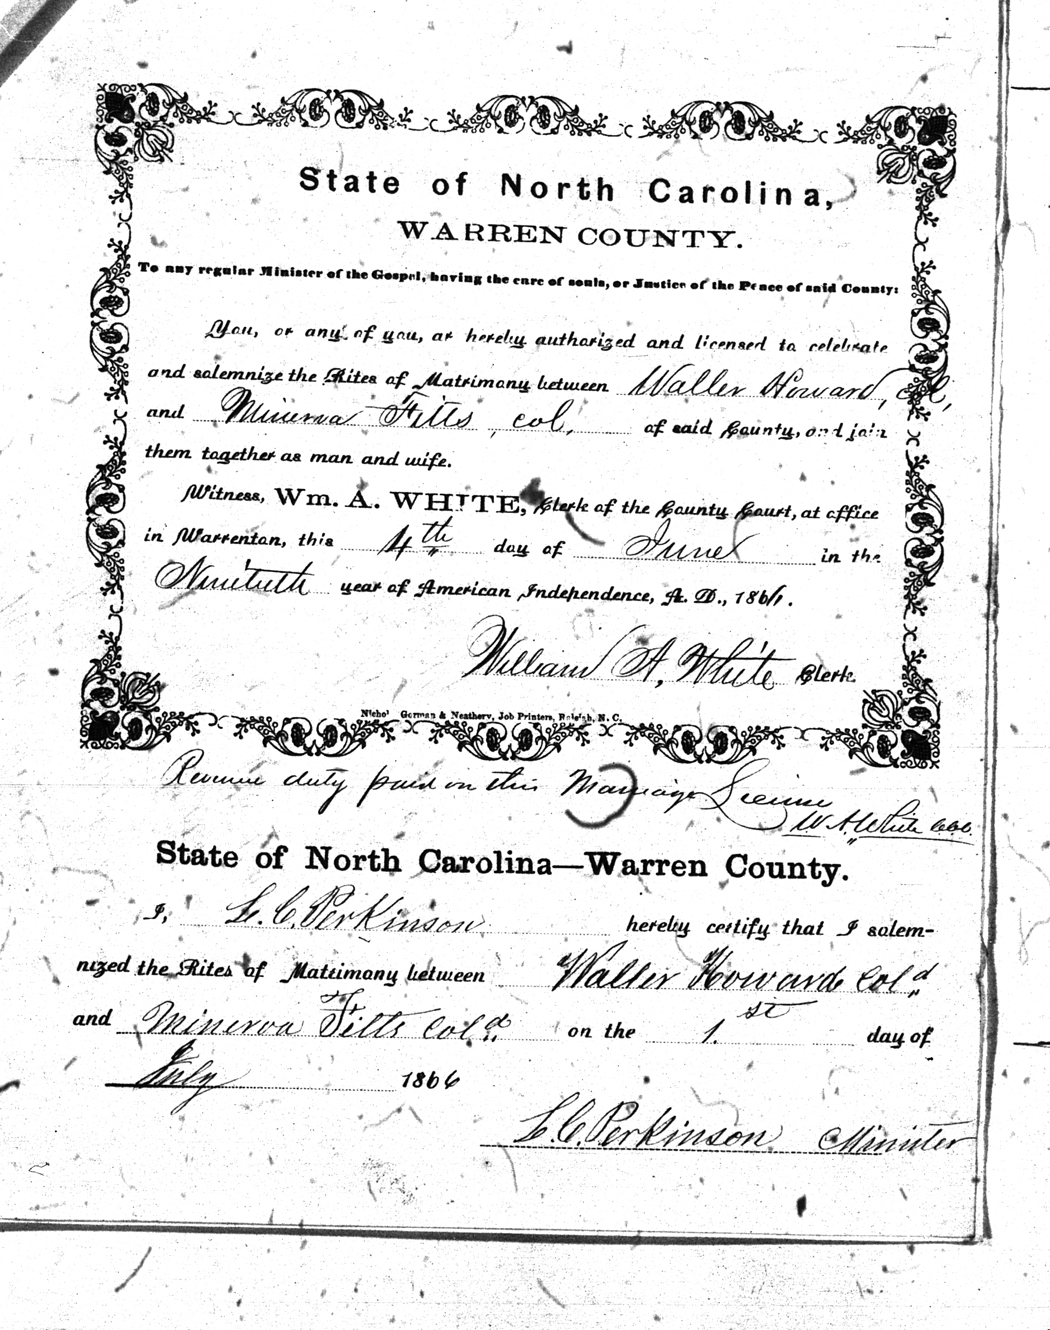 State of North Carolina,
WARREN COUNTY.
To any regular Minister of the Gospel, having the care of souls, or Justice of the Peace of said County:
You, or any of you, ar hereby authorized and licensed to celebrate
and solemnize the Rites of Matrimony between Waller Howard, col,
and Minerva Fitts, col, of said County, and join
them together as man and wife.
Witness, Wm. A. WHITE, Clerk of the County Court, at office
in Warrenton, this 4th day of June in the
Ninetieth year of American Independence, A. D., 1866.
William A, White Clerk.
Nichol Gorman & Neathery, Job Printers, Raleigh, N. C.
Revenue duty paid on this Marriage License
W. A. White
State of North Carolina—Warren County.
I, L. C. Perkinson hereby certify that I solem-
nized the Rites of Matrimony between Waller Howard Cold
and Minerva Fitts Cold on the 1st day of
July 1866
L. C. Perkinson Minister